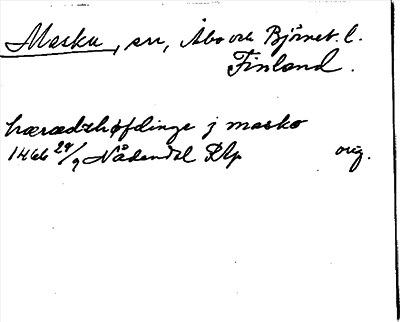 Masku, sn, Åbo och Björneb. l.
Finland.
hæradzhøfdinge j masko
1466 29/9 Nådendal RAp orig.